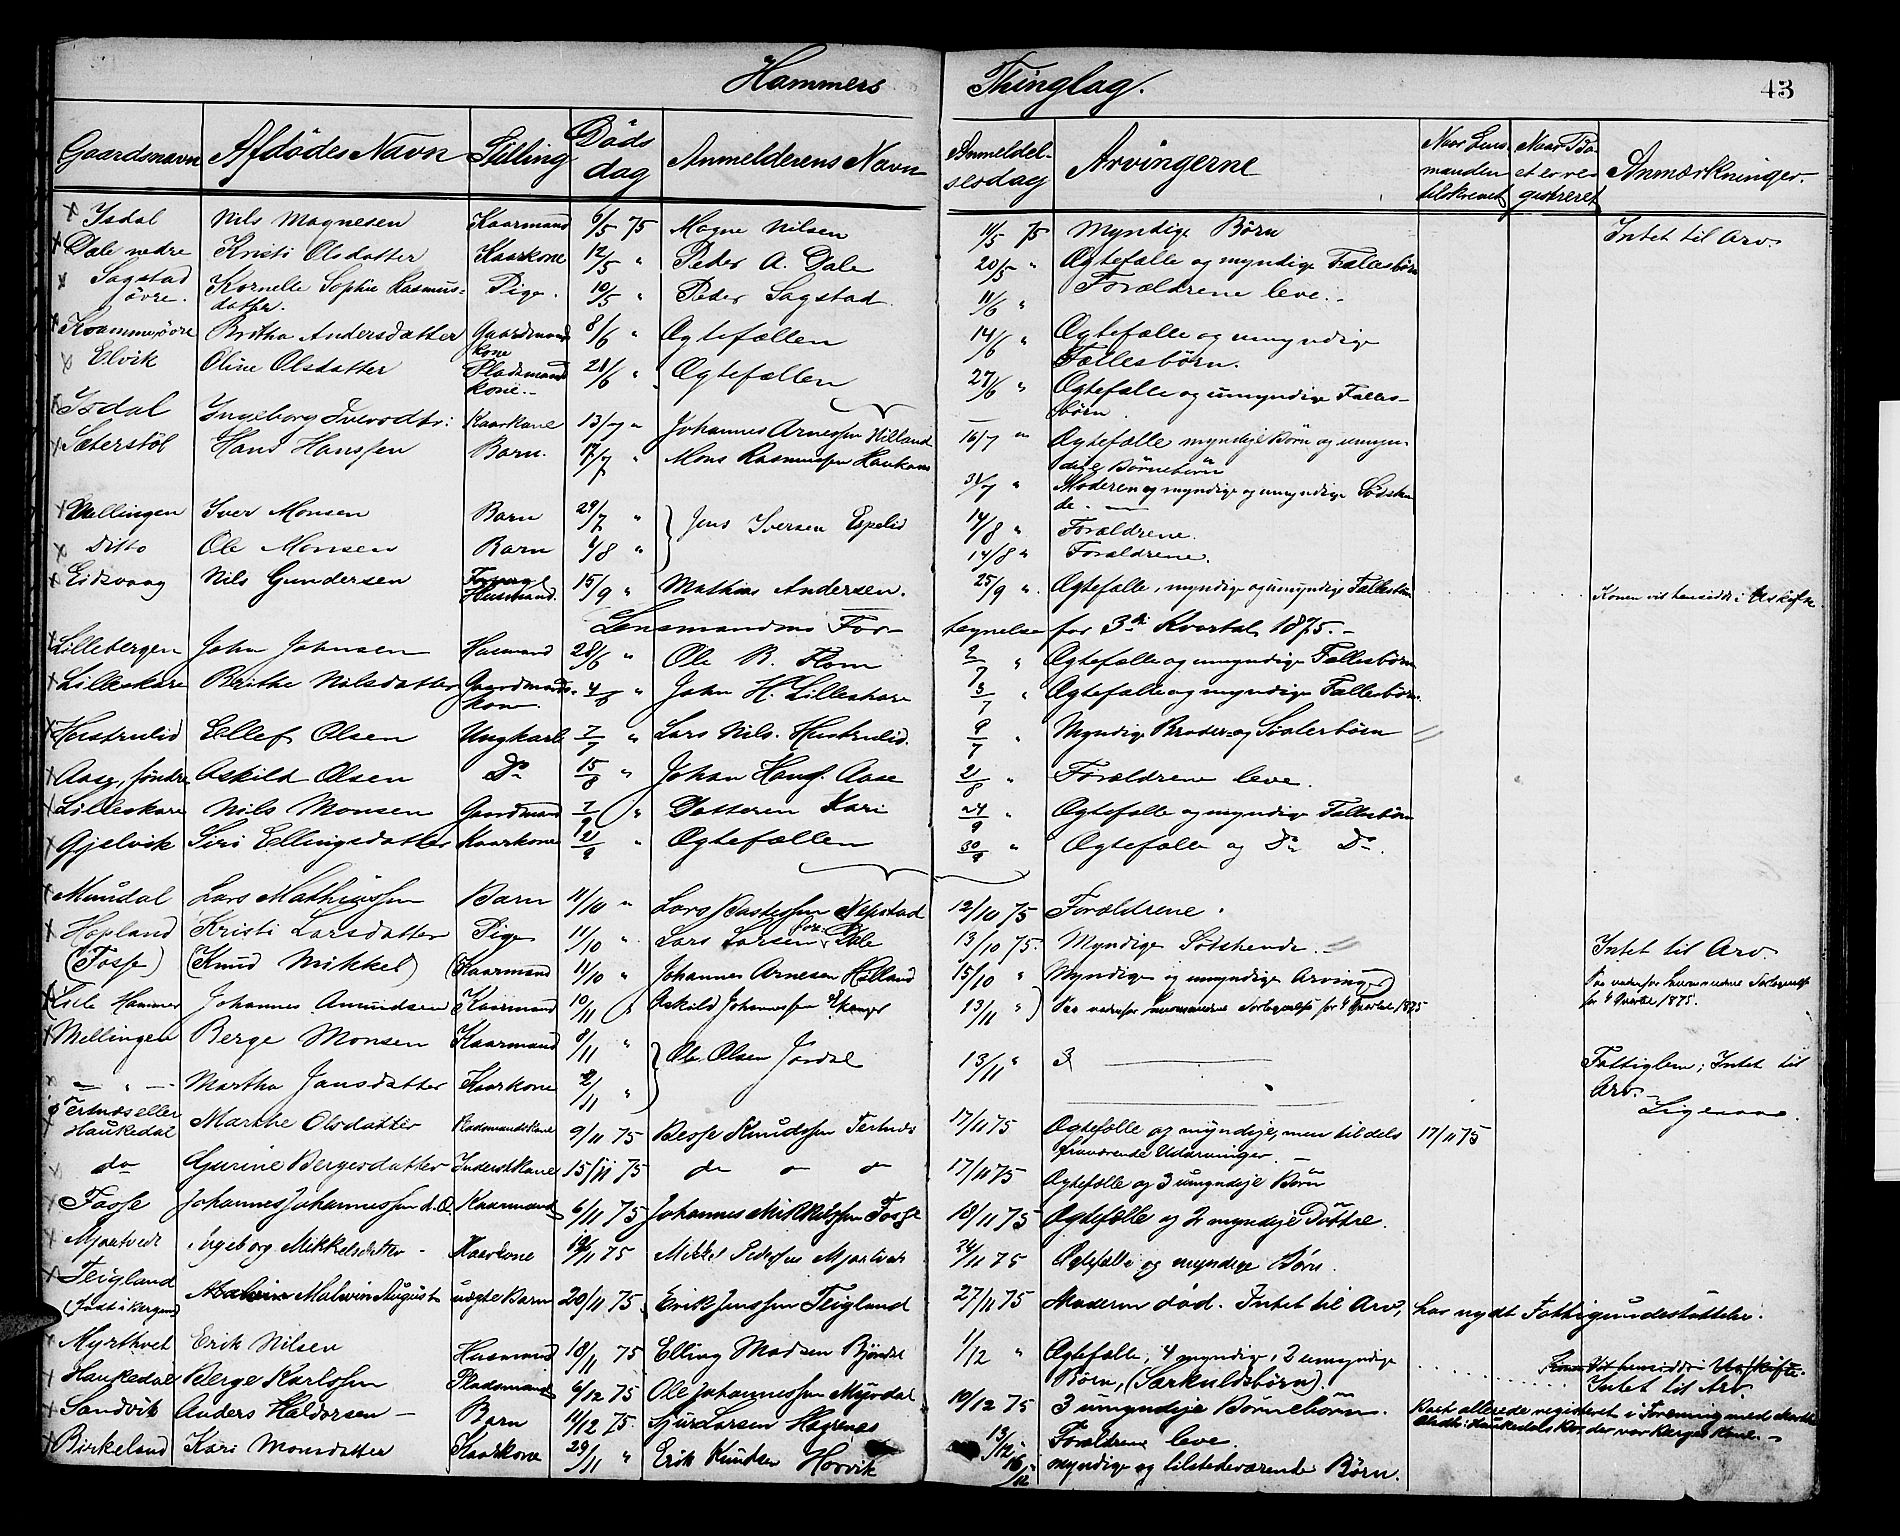 Hammers Thinglag.
43
Gaardsnavn Afdødes Navn Stilling Døds dag Anmelderens Navn Anmeldelsesdag Arvingerne Naar Lensmanden tilskrevet Naar Boet er registreret Anmærkninger.
Isdal Nils Magnesen Kaarmand 6/5 75 Magne Nilsen 11/5 75 Myndige Børn Intet til Arv.
Dale nedre Kristi Olsdatter Kaarkone 12/5 " Peder A. Dale 20/5 " Ægtefælle og myndige Fællesbørn
Sagstad øvre. Kornelle Sophie Rasmusdatter. Pige. 10/5 " Peder Sagstad 11/6 " Forældrene leve.
Kvamme øvre Britha Andersdatter Gaardmandkone 8/6 " Ægtefællen 14/6 " Ægtefælle og umyndige Fællesbørn.
Elvik Oline Olsdatter Pladsmandkone 21/6 " Ægtefællen 27/6 " Ægtefælle og umyndige Fællesbørn
Isdal Ingeborg Iversdtr: Kaarkone 13/7 " Johannes Arnessen Hilland 16/7 " Ægtefælle myndije Børn og umyndige Børnebørn
Sæterstøl Hans Hanssen Barn. 17/7 " Mons Rasmussen Haukaas 31/7 " Moderen og myndige og umyndige Sødskende.
Mellingen Iver Monsen Barn 29/7 " Jens Iversen Espelid 14/8 " Forældrene.
Ditto Ole Monsen Barn 6/8 " 14/8 " Forældrene.
Eidsvaag Nils Gundersen Husmand. 15/9 " Mathias Andersen. 25/9 " Ægtefælle, myndige og umyndige Fællesbørn Konen vil hensidde i Uskifte.
Lensmandens Fortegnelse for 3die Kvartal 1875.
Lillebergen John Johnsen Husmand 28/6 " Ole B. Flom 2/7 " Ægtefælle og umyndige Fællesbørn
Lilleskare Brithe Nilsdatter Gaardmandskone 4/6 " John H. Lilleskare 3/7 " Ægtefælle og myndige Fællesbørn.
Hustrulid Ellef Olsen Ungkarl 7/7 " Lars Nils. Hustrulid. 9/7 " Myndige Broder og Søsterbørn
Aase, søndre Askild Olsen Do 15/8 " Johan Hansf. Aase 21/8 " Forældrene leve.
Lilleskare Nils Monsen Gaardmand 7/9 " Datteren Kari 24/9 " Ægtefælle og myndige Fællesbørn
Gjelvik Siri Ellingsdatter Kaarkone 21/9 " Ægtefællen 30/9 " Ægtefælle og Do Do.
Mundal Lars Mathiassen Barn 11/10 " Lars Bastessen Nepstad 12/10 75 Forældrene.
Hopland Kristi Larsdatter Pige 11/10 " Lars Larsen Dale 13/10 75. Myndige Sødskende.
(Fosse) (Knud Mikkel) (Kaarmand 11/10 " Johannes Arnesen Helland 15/10 " Myndige og umyndige Arvinge) Intet til Arv.
Lile Hammer Johannes Amundsen Kaarmand 10/11 " Askild Johannessen 13/11 " for 4 Qvartal 1875
for 4 Qvartal 1875.
Mellingen Berge Monsen Kaarmand 8/11 " Ole Olsen Jordal 13/11 " Fattiglem; Intet til Arv.
— " — Martha Jansdatter Kaarkone 2/11 " Ligesaa.
Tertnæs eller Haukedal Marthe Olsdatter Kadsmandskone 9/11 75 Besse Knudssen Tertnæs 17/11 75 Ægtefælle og myndije, men tildels fraværende Udarvinger. 17/11 75
do Gurine Bergesdatter Inderstkone 15/11 75 do " " 17/11 75 Ægtefælle og 3 umyndije Børn
Fosse Johannes Johannessen d. Æ. Kaarmand 6/11 75 Johannes Mikkelssen Fosse 18/11 75 Ægtefælle og 2 myndije Døttre.
Mjøetvedt Ingeborg Mikkelsdatter Kaarkone 19/11 75 Mikkel Pederssen Mjøetvedt 26/11 75 Ægtefælle og myndige Børn.
Teigland (født i Bergen) Malvin August uægte Barn 20/11 75 Erik Jenssen Teigland 27/11 75 Moderen død. Intet til Arv, har nydt Fattigundestøttelse.
Myrthvet Erik Nilsen Husmand 18/11 75 Elling Madsen Bjøndal 1/12 " Ægtefælle, 4 myndige, 2 umyndige Børn, (Særkuldsbørn). Konen Vil hensidde i Uskifte.
Intet til Arv.
Haukedal Berge Karlssen Pladsmand 4/12 75 Ole Johannessen Myrdal 10/12 75 3 umyndije Børnebørn. Boet allerede registreret i Forening med Marthe Olsdtr: Haukedals Bo, der var Berges Kone.
Sandvik Anders Haldorsen Barn 10/12 75. Sjur Larsen Hagenæs 13/12 " Forældrene leve.
Birkeland Kari Monsdatter Kaarkone 29/11 " Erik Knudsen Horvik 16/12 " myndige og tilstedeværende Børn.